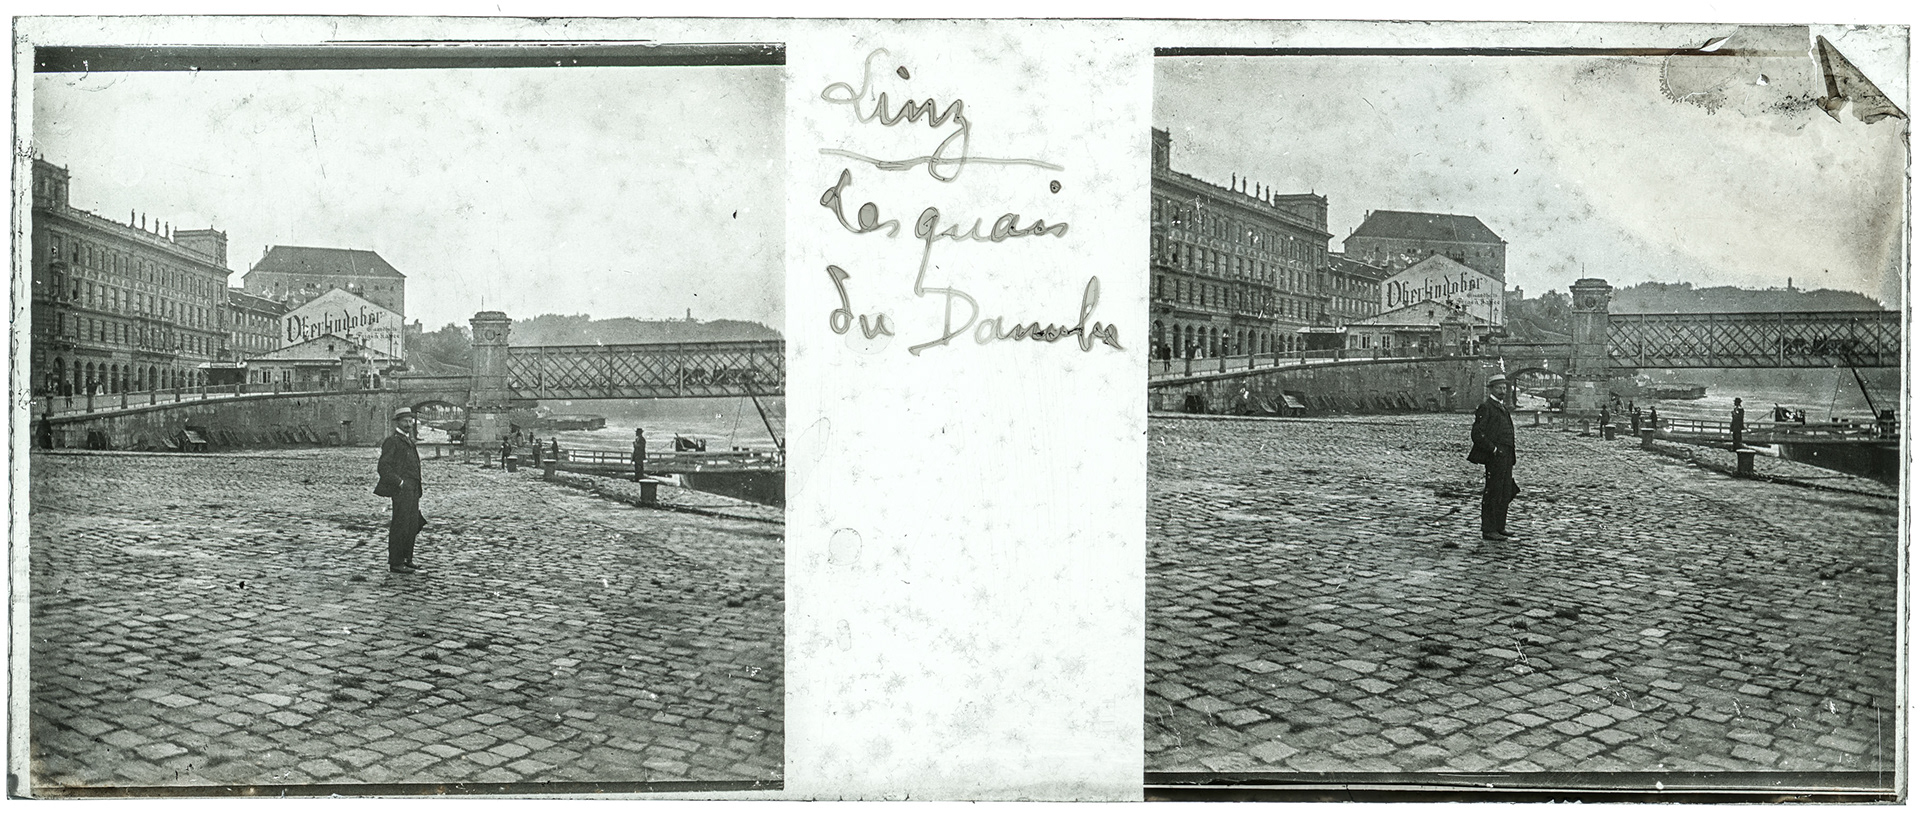 Linz
Les quais
du Danube
Oberlindober
Oberlindober